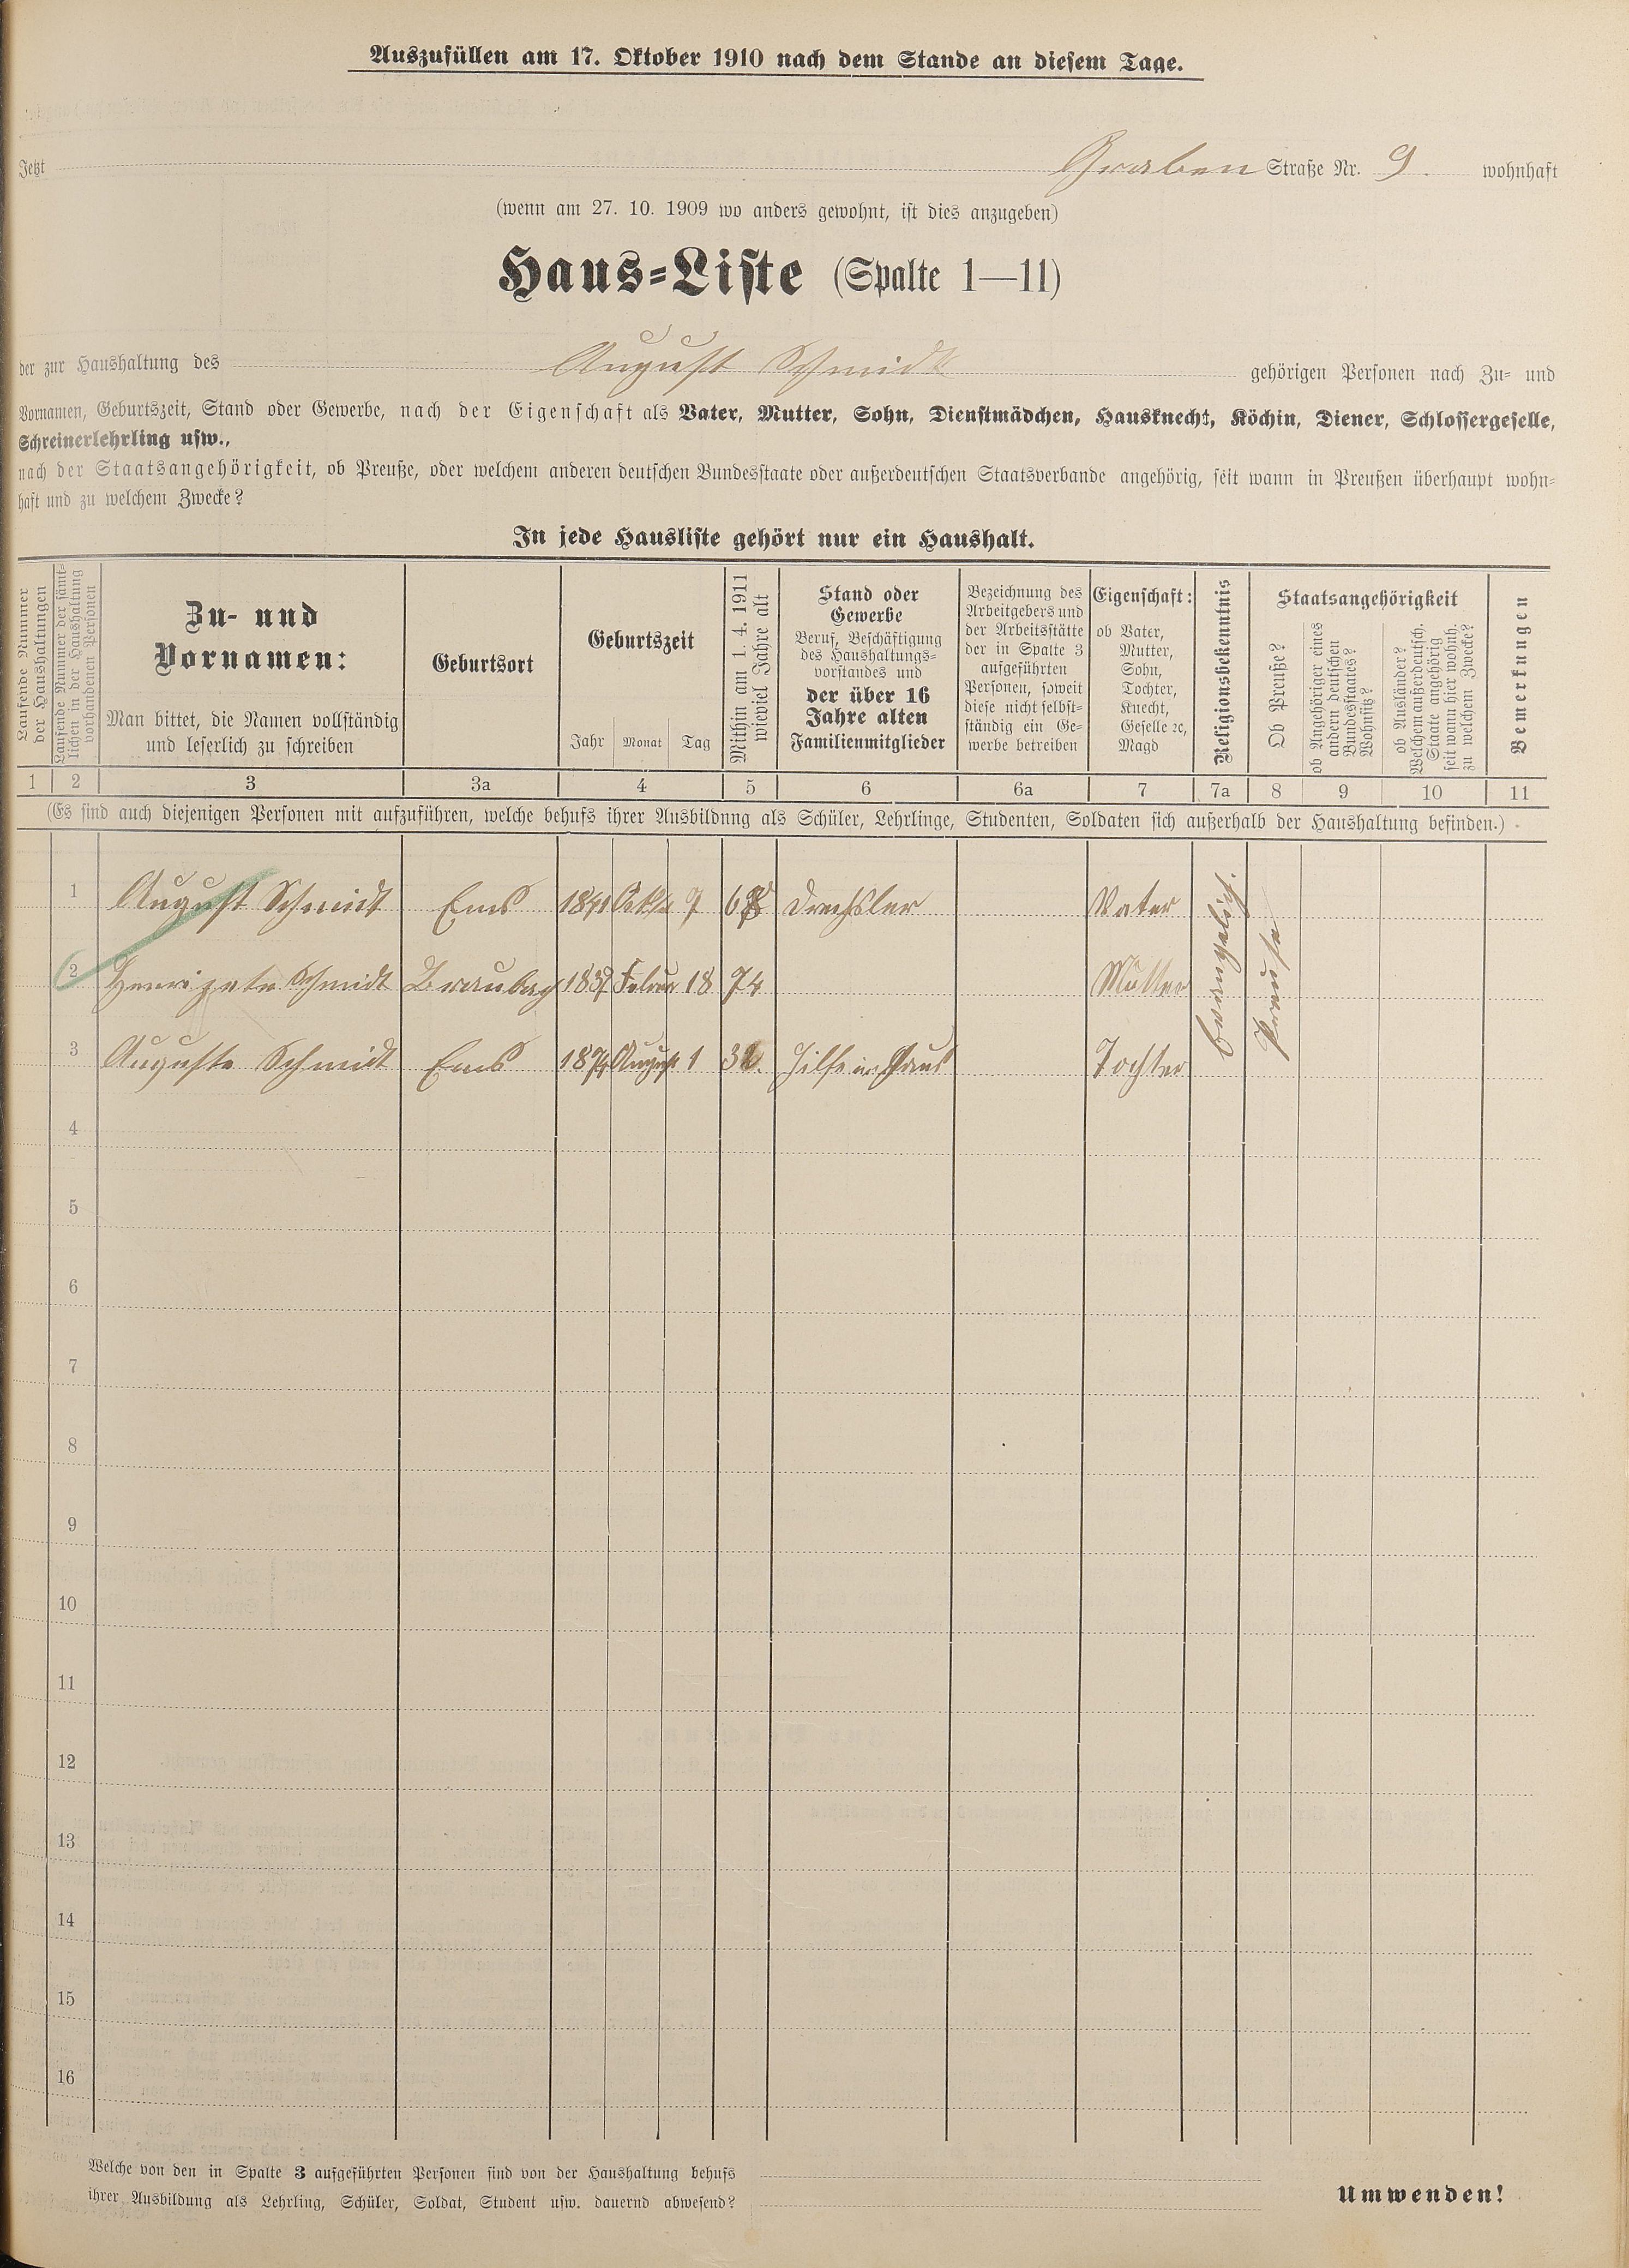 Auszufüllen am 17. Oktober 1910 nach dem Stande an diesem Tage.
Jetzt Graben Straße Nr. 9. wohnhaft
(wenn am 27. 10. 1909 wo anders gewohnt, ist dies anzugeben)
Haus-Liste (Spalte 1—11)
der zur Haushaltung des August Schmidt gehörigen Personen nach Zu- und
Vornamen, Geburtszeit, Stand oder Gewerbe, nach der Eigenschaft als Vater, Mutter, Sohn, Dienstmädchen, Hausknecht, Köchin, Diener, Schlossergeselle,
Schreinerlehrling usw.,
nach der Staatsangehörigkeit, ob Preuße, oder welchem anderen deutschen Bundesstaate oder außerdeutschen Staatsverbande angehörig, seit wann in Preußen überhaupt wohn-
haft und zu welchem Zwecke?
In jede Hausliste gehört nur ein Haushalt.
Laufende Nummer
der Haushaltungen
Laufende Nummer der sämt-
lichen in der Haushaltung
vorhandenen Personen
Zu- und
Vornamen:
Man bittet, die Namen vollständig
und leserlich zu schreiben
Geburtsort
Geburtszeit
Jahr Monat Tag
Mithin am 1. 4. 1911
wieviel Jahre alt
Stand oder
Gewerbe
Beruf, Beschäftigung
des Haushaltungs-
vorstandes und
der über 16
Jahre alten
Familienmitglieder
Bezeichnung des
Arbeitgebers und
der Arbeitsstätte
der in Spalte 3
aufgeführten
Personen, soweit
diese nicht selbst-
ständig ein Ge-
werbe betreiben
Eigenschaft:
ob Vater,
Mutter,
Sohn,
Tochter,
Knecht,
Geselle ꝛc,
Magd
Religionsbekenntnis
Staatsangehörigkeit
Ob Preuße?
ob Angehöriger eines
andern deutschen
Bundesstaates?
Wohnsitz?
ob Ausländer?
Welchem außerdeutsch.
Staate angehörig
seit wann hier wohnh.
zu welchem Zwecke?
Bemerkungen
1 2 3 3a 4 5 6 6a 7 7a 8 9 10 11
(Es sind auch diejenigen Personen mit aufzuführen, welche behufs ihrer Ausbildnng als Schüler, Lehrlinge, Studenten, Soldaten sich außerhalb der Haushaltung befinden.)
1 August Schmidt Ems Drechsler Vater
evangelisch.
Preuße
2 Schmidt Braubach 1837 Februar 18 74 Mutter
3 Auguste Schmidt Ems August 1 Hilfe im Haus Tochter
4
5
6
7
8
9
10
11
12
13
14
15
16
Welche von den in Spalte 3 aufgeführten Personen sind von der Haushaltung behufs
ihrer Ausbildung als Lehrling, Schüler, Soldat, Student usw. dauernd abwesend?
Umwenden!